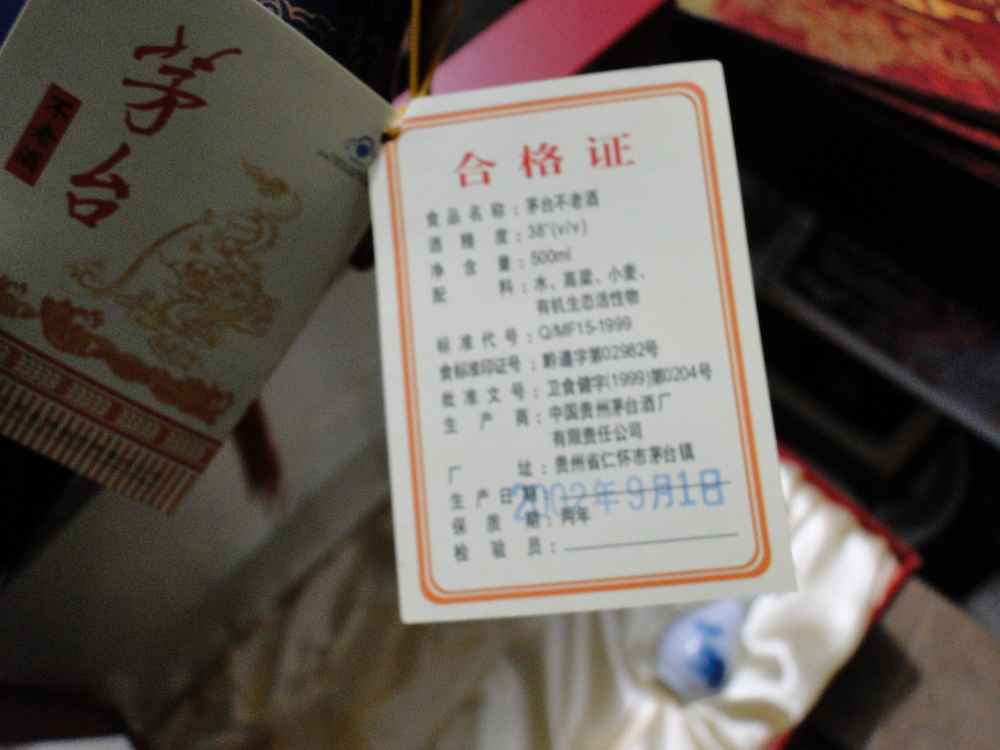 茅台
不老酒
合格证
食品名称：茅台不老酒
酒精度：38°(v/v)
净含量：500ml
配料：水、高粱、小麦、
有机生态活性物
标准代号：Q/MF15-1999
食标准印证号：黔遵字第02982号
批准文号：卫食健字(1999)第0204号
生产商：中国贵州茅台酒厂
有限责任公司
厂址：贵州省仁怀市茅台镇
生产日期：2002年9月1日
保质期：两年
检验员：